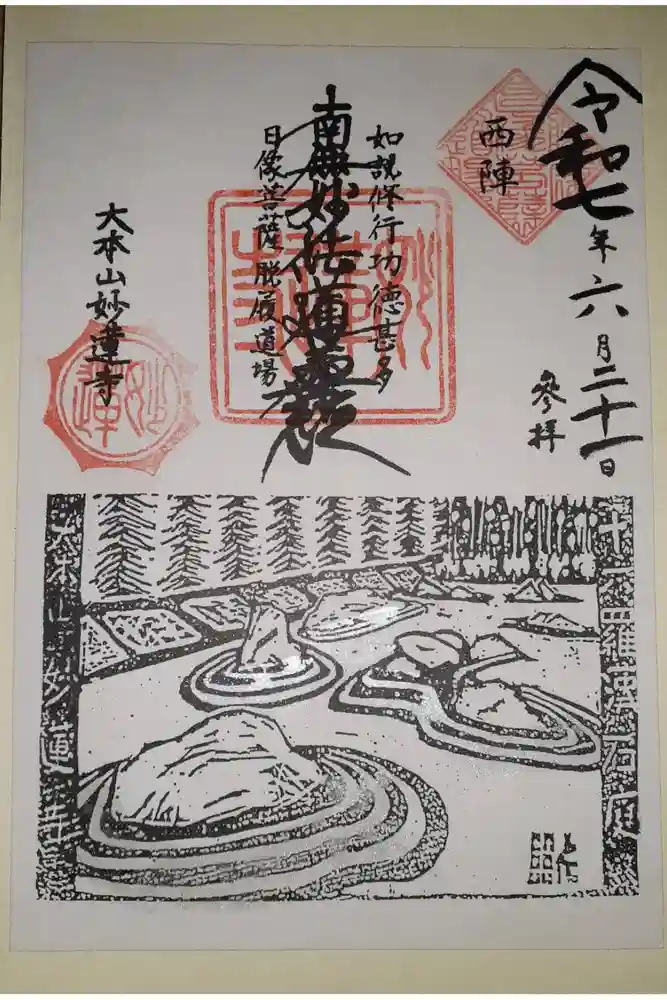 令和七年六月二十一日
参拝
西陣
如説修行功徳甚多
南無妙法蓮華経
日像菩薩脱履道場
大本山妙蓮寺
妙蓮
十六羅漢石庭
大本山妙蓮寺